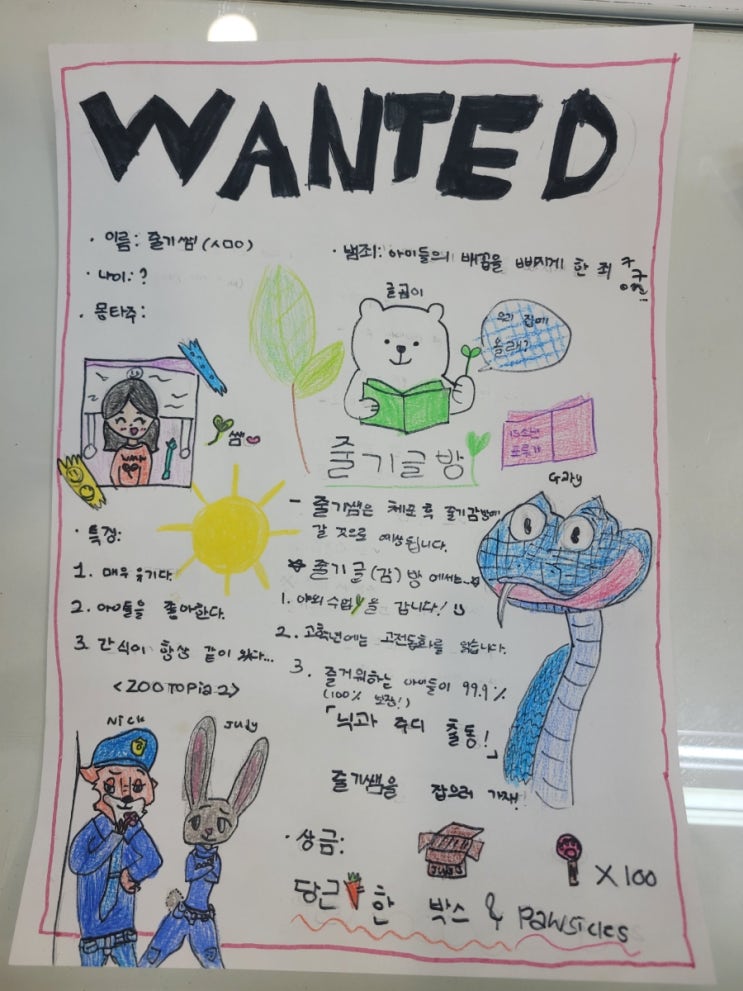 WANTED
· 이름: 줄기쌤 (ㅅㅁㅇ)
· 나이: ?
· 몽타주:
· 범죄: 아이들의 배꼽을 빠지게 한 죄
글곰이
우리 집에
올래?
쌤
줄기글방
15소년
표류기
Gary
· 특징:
1. 매우 웃기다.
2. 아이들을 좋아한다.
3. 간식이 항상 같이 있다...
- 줄기쌤은 체포 후 줄기감방에
갈 것으로 예상됩니다.
줄기 글(감)방에서는...
1. 야외수업을 갑니다!
2. 고학년에는 고전동화를 읽습니다.
3. 즐거워하는 아이들이 99.9%
(100% 보장!)
<ZOOTOPIA 2>
Nick
Judy
「닉과 주디 출동!」
줄기쌤을 잡으러 가재!
· 상금:
X 100
당근 한 박스 & Pawsicles